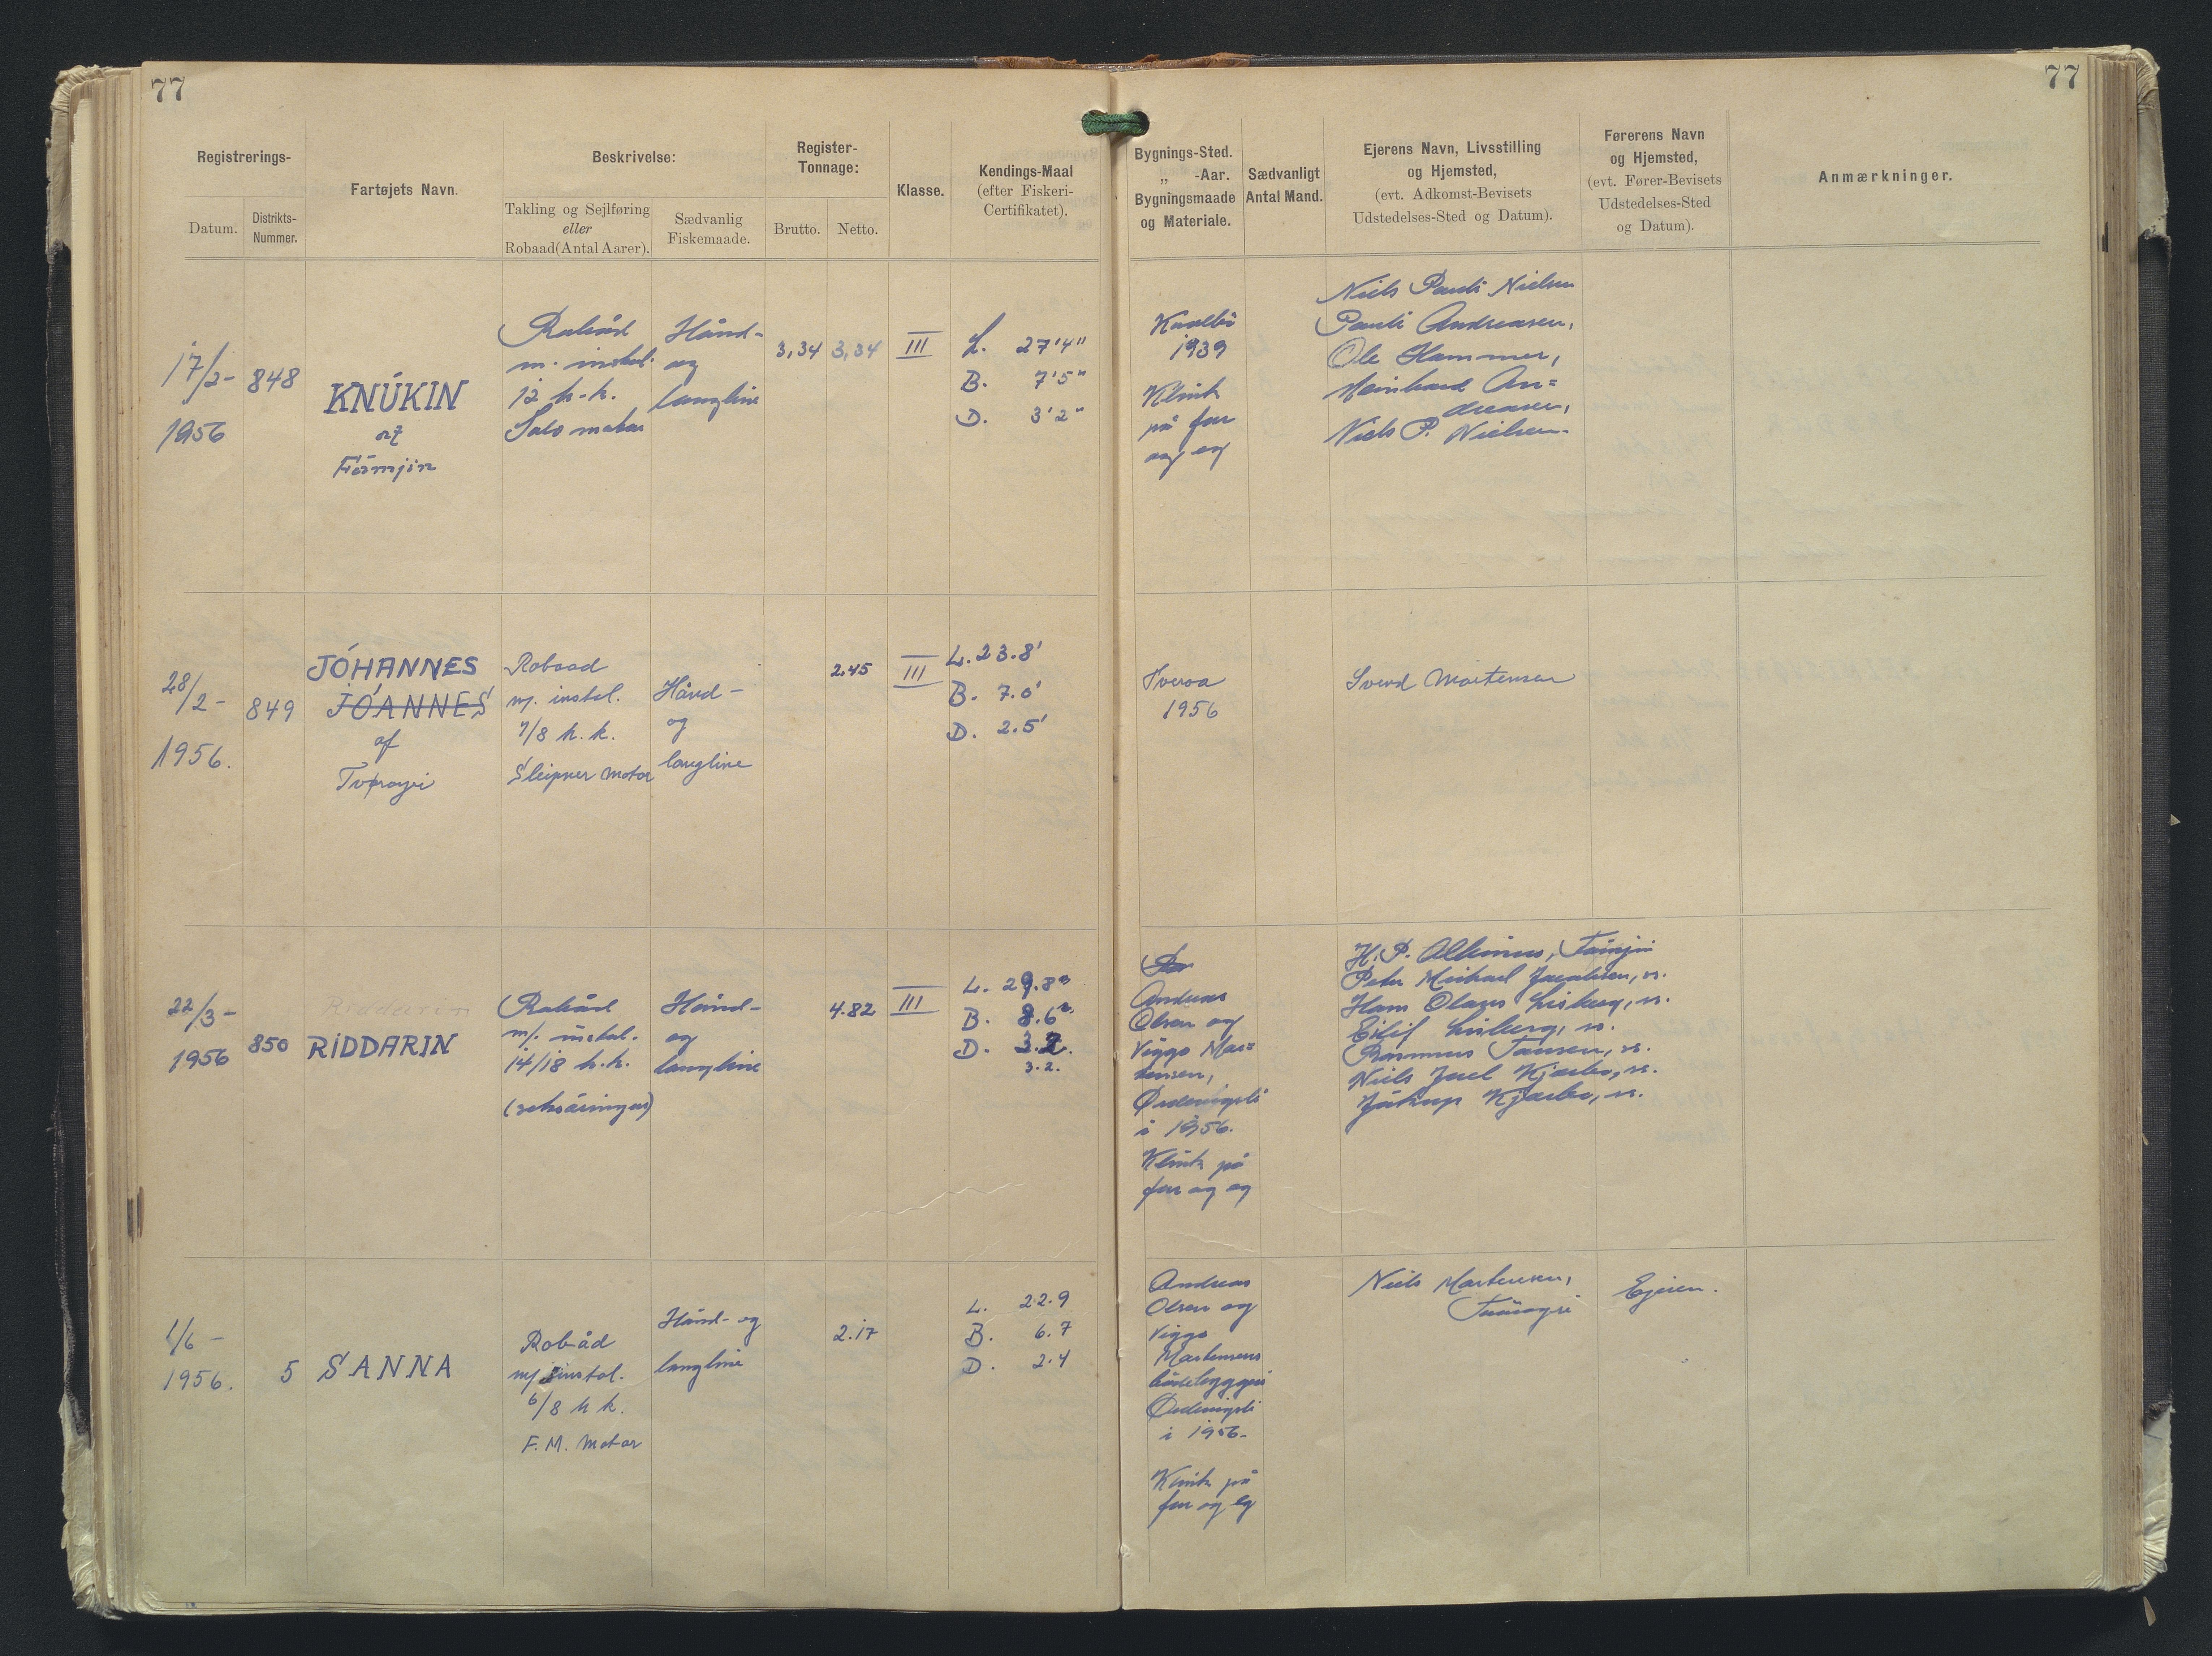 77
77
Registrerings-
Datum.
Distrikts-
Nummer.
Fartøjets Navn.
Beskrivelse:
Takling og Sejlføring
eller
Robaad (Antal Aarer).
Sædvanlig
Fiskemaade.
Register-
Tonnage:
Brutto.
Netto.
Klasse.
Kendings-Maal
(efter Fiskeri-
Certifikatet).
Bygnings-Sted.
„ -Aar.
Bygningsmaade
og Materiale.
Sædvanligt
Antal Mand.
Ejerens Navn, Livsstilling
og Hjemsted,
(evt. Adkomst-Bevisets
Udstedelses-Sted og Datum).
Førerens Navn
og Hjemsted,
(evt. Fører-Bevisets
Udstedelses-Sted
og Datum).
Anmærkninger.
17/2-
1956
848
KNÚKIN
af
Robåd
m. instal.
12 h.k.
Solo motor
Hånd-
og
langline
3,34
3,34
III
L. 27'4"
B. 7'5"
D. 3'2"
1939
Klink
på fur
og eg
Niels Pauli Nielsen
Pauli Andreasen,
Ole Hammer,
Meinhard An=
dreasen,
Niels P. Nielsen.
28/2-
1956.
849
JÓHANNES
JÓANNES
af
Tvøroyri
Robaad
m/. instal.
7/8 h.k.
Sleipner motor
Hånd-
og
langline
2.45
III
L. 23.8'
B. 7.0'
D. 2.5'
Tveraa
1956
Svend Mortensen
22/3-
1956
850
Riddarin
RIDDARIN
Robåd
m/. instal.
14/18 h.k.
(seksåringur)
Hånd-
og
langline
4.82
III
L. 29.8"
B. 8.6"
D. 3.2.
3.2.
Andreas
Olsen og
Viggo Mor=
tensen,
i 1956.
Klink på
fur og eg
H. P.
Peter Michael Jacobsen, s.
Hans Olaus Lisberg, s.
Eilif Lisberg, s.
Rasmus Jansen, s.
Niels Juel Kjærbo, s.
Jákup Kjærbo, s.
1/6-
1956.
5
SANNA
Robåd
m/. instal.
6/8 h.k.
F.M. Motor
Hånd- og
langline
2.17
L. 22.9
B. 6.7
D. 2.4
Andreas
Olsen og
Viggo
Mortensens
bådebyggeri
i 1956.
Klink på
fur og eg
Niels Mortensen,
Tvøroyri
Ejeren.